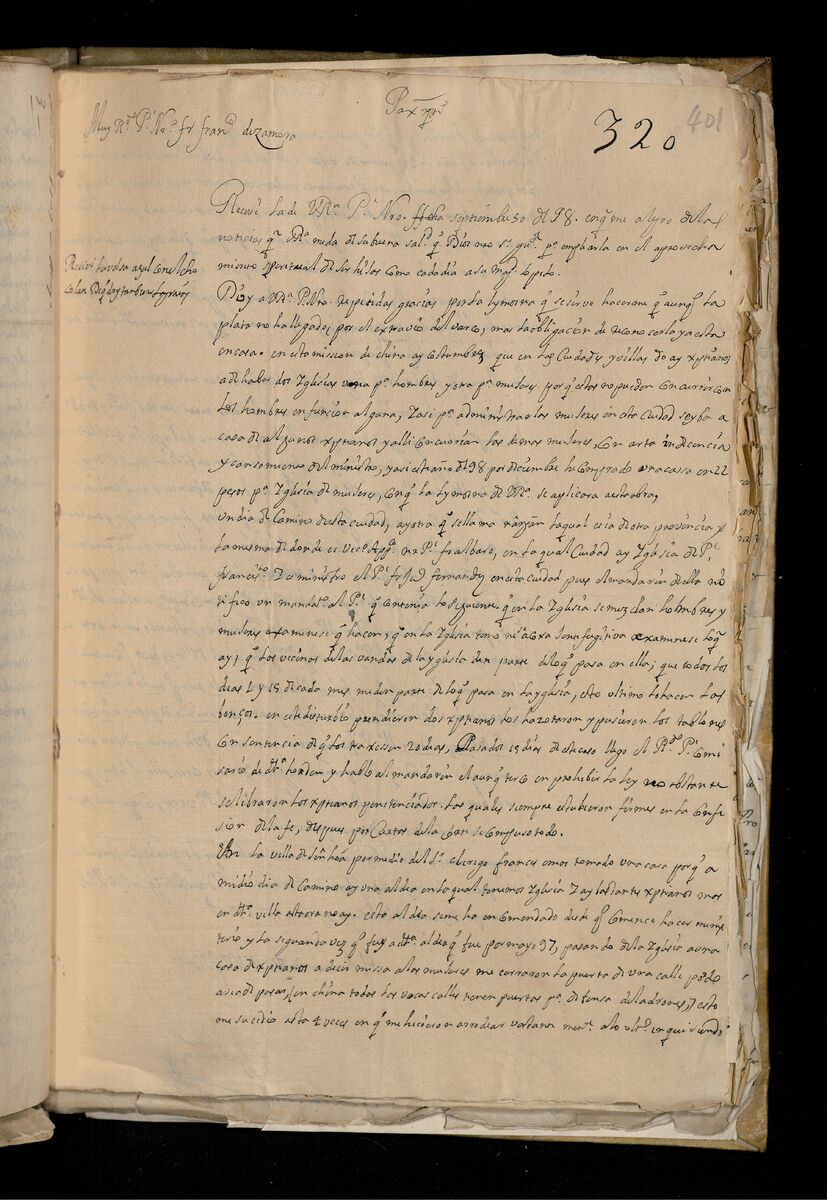 Pax xpti
320
401
Muy Rdo. Pe. Nro. fr franco. de Zamora
Recivi la de VRa. Pe. Nro. fecha septiembre 30 de 98. en q me alegro de la
noticia q VRa. me da de su buena sald. q Dios nro Sr. gue. pa. emplearla en el aprovecha
miento spiritual de sus subditos como cada dia a su magd. le pido.
Recivi la volsa azul con el
Doy a VRa. P. Nro. repetidas gracias por la lymosna q se sirve hacerme q aunq la
plata no ha llegado, por el extravio del varco, mas la obligacion de reconocerla ya esta
en casa. en esta mission de china ay costumbre, que en las Ciudades y villas do ay xptianos
a de haber dos Iglesias una pa. hombres y otra pa. mujeres porq estas no pueden concurrir con
los hombres en funcion alguna, y asi pa. administrar las mujeres en esta Ciudad se yba a
casa de algunos xptianos y alli concurrian las demas mujeres, con arta indecencia
y cansamiento del ministro, y asi est año de 98 por diciembre he comprado una cassa en 22
pesos pa. Iglesia de mujeres, con q la lymosna de VRa. se aplicara a esta obra,
un dia de Camino desta ciudad, ay otra q se llama la qual esta en otra provincia y
la mesma de donde es Vico. Appco. nro Pe. fr albaro, en la qual Ciudad ay Iglesia de Pes.
francisos. y es ministro el Pe. fr Jph fernandez en esta ciudad pues el mandarin de ella no
tifico un mandato. al Pe. q contenia lo siguiente. q en la Iglesia se mezclan hombres y
mujeres examinese q hacen; q en la Iglesia examinese lo q
ay; q los vecinos de las vandas de la yglesia den parte de lo q pasa en ella; que todos los
dias 1 y 15 de cada mes me den parte de lo q pasa en la yglesia, esto ultimo lo hacen los
bonços. en este disturbio prendieron dos xptianos los hazotaron y pusieron los tablones
con sentencia de q los traxessen 20 dias, Pasados 15 dias de este caso llego el Rdo. Pe. Comi
sario de dha. horden y hablo al mandarin el aunq terco en prohibir la ley no obstante
se libraron los xptianos penitenciados. los quales siempre estubieron firmes en la confe
sion de la fe, despues por Cartas de la Corte se compuso todo.
En la villa de por medio del Sr. clerigo frances emos tomado una casa porq a
medio dia de Camino ay una aldea en la qual tenemos Iglesia y ay bastantes xptianos mas
en dha. villa asta ora no ay. esta aldea se me ha encomendado desde q comence hacer minis
terio y la segunda vez q fuy a dha. aldea q fue por mayo 97, pasando de la Iglesia a una
casa de xptianos a decir missa a las mujeres me cerraron la puerta de una calle por do
avia de pasar, (en china todas las vocas calles tienen puertas pa. defensa de ladrones,) esto
me sucedio asta 4 veces en q me hicieron arrodear